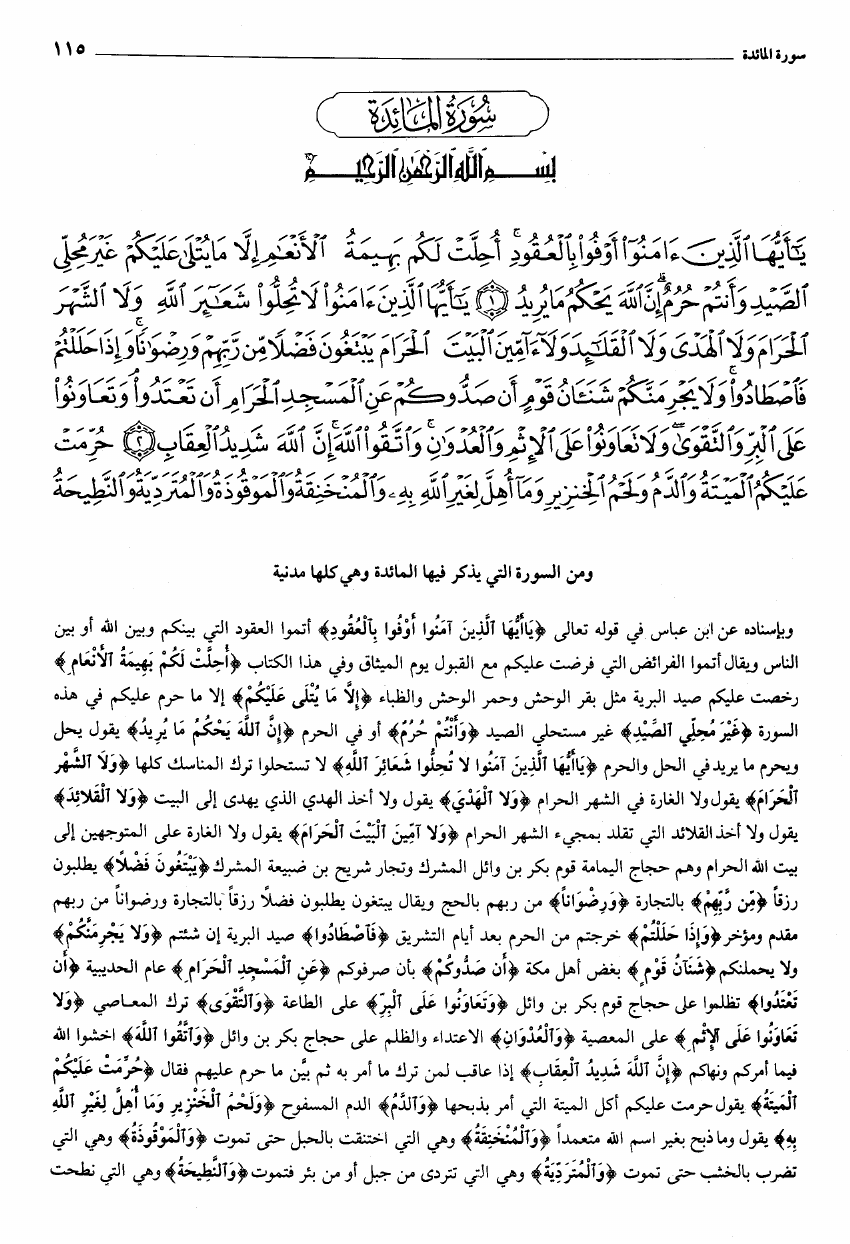 سورة المائدة ١١٥
سُورَةُ المَائِدَةِ
بِسْمِ ٱللَّهِ ٱلرَّحْمَٰنِ ٱلرَّحِيمِ
يَٰٓأَيُّهَا ٱلَّذِينَ ءَامَنُوٓا۟ أَوْفُوا۟ بِٱلْعُقُودِ ۚ أُحِلَّتْ لَكُم بَهِيمَةُ ٱلْأَنْعَٰمِ إِلَّا مَا يُتْلَىٰ عَلَيْكُمْ غَيْرَ مُحِلِّى
ٱلصَّيْدِ وَأَنتُمْ حُرُمٌ ۗ إِنَّ ٱللَّهَ يَحْكُمُ مَا يُرِيدُ ﴿١﴾ يَٰٓأَيُّهَا ٱلَّذِينَ ءَامَنُوا۟ لَا تُحِلُّوا۟ شَعَٰٓئِرَ ٱللَّهِ وَلَا ٱلشَّهْرَ
ٱلْحَرَامَ وَلَا ٱلْهَدْىَ وَلَا ٱلْقَلَٰٓئِدَ وَلَآ ءَآمِّينَ ٱلْبَيْتَ ٱلْحَرَامَ يَبْتَغُونَ فَضْلًا مِّن رَّبِّهِمْ وَرِضْوَٰنًا ۚ وَإِذَا حَلَلْتُمْ
فَٱصْطَادُوا۟ ۚ وَلَا يَجْرِمَنَّكُمْ شَنَـَٔانُ قَوْمٍ أَن صَدُّوكُمْ عَنِ ٱلْمَسْجِدِ ٱلْحَرَامِ أَن تَعْتَدُوا۟ ۘ وَتَعَاوَنُوا۟
عَلَى ٱلْبِرِّ وَٱلتَّقْوَىٰ ۖ وَلَا تَعَاوَنُوا۟ عَلَى ٱلْإِثْمِ وَٱلْعُدْوَٰنِ ۚ وَٱتَّقُوا۟ ٱللَّهَ ۖ إِنَّ ٱللَّهَ شَدِيدُ ٱلْعِقَابِ ﴿٢﴾ حُرِّمَتْ
عَلَيْكُمُ ٱلْمَيْتَةُ وَٱلدَّمُ وَلَحْمُ ٱلْخِنزِيرِ وَمَآ أُهِلَّ لِغَيْرِ ٱللَّهِ بِهِۦ وَٱلْمُنْخَنِقَةُ وَٱلْمَوْقُوذَةُ وَٱلْمُتَرَدِّيَةُ وَٱلنَّطِيحَةُ
ومن السورة التي يذكر فيها المائدة وهي كلها مدنية
وبإسناده عن ابن عباس في قوله تعالى ﴿يَاأَيُّهَا ٱلَّذِينَ آمَنُوا أَوْفُوا بِٱلْعُقُودِ﴾ أتموا العقود التي بينكم وبين الله أو بين
الناس ويقال أتموا الفرائض التي فرضت عليكم مع القبول يوم الميثاق وفي هذا الكتاب ﴿أُحِلَّتْ لَكُمْ بَهِيمَةُ ٱلأَنْعَامِ﴾
رخصت عليكم صيد البرية مثل بقر الوحش وحمر الوحش والظباء ﴿إِلَّا مَا يُتْلَى عَلَيْكُمْ﴾ إلا ما حرم عليكم في هذه
السورة ﴿غَيْرَ مُحِلِّي ٱلصَّيْدِ﴾ غير مستحلي الصيد ﴿وَأَنْتُمْ حُرُمٌ﴾ أو في الحرم ﴿إِنَّ ٱللَّهَ يَحْكُمُ مَا يُرِيدُ﴾ يقول يحل
ويحرم ما يريد في الحل والحرم ﴿يَاأَيُّهَا ٱلَّذِينَ آمَنُوا لَا تُحِلُّوا شَعَائِرَ ٱللَّهِ﴾ لا تستحلوا ترك المناسك كلها ﴿وَلَا ٱلشَّهْرَ
ٱلْحَرَامَ﴾ يقول ولا الغارة في الشهر الحرام ﴿وَلَا ٱلْهَدْيَ﴾ يقول ولا أخذ الهدي الذي يهدى إلى البيت ﴿وَلَا ٱلْقَلَائِدَ﴾
يقول ولا أخذ القلائد التي تقلد بمجيء الشهر الحرام ﴿وَلَا آمِّينَ ٱلْبَيْتَ ٱلْحَرَامَ﴾ يقول ولا الغارة على المتوجهين إلى
بيت الله الحرام وهم حجاج اليمامة قوم بكر بن وائل المشرك وتجار شريح بن ضبيعة المشرك ﴿يَبْتَغُونَ فَضْلًا﴾ يطلبون
رزقاً ﴿مِّن رَّبِّهِمْ﴾ بالتجارة ﴿وَرِضْوَاناً﴾ من ربهم بالحج ويقال يبتغون يطلبون فضلًا رزقاً بالتجارة ورضواناً من ربهم
مقدم ومؤخر ﴿وَإِذَا حَلَلْتُمْ﴾ خرجتم من الحرم بعد أيام التشريق ﴿فَٱصْطَادُوا﴾ صيد البرية إن شئتم ﴿وَلَا يَجْرِمَنَّكُمْ﴾
ولا يحملنكم ﴿شَنَآنُ قَوْمٍ﴾ بغض أهل مكة ﴿أَن صَدُّوكُمْ﴾ بأن صرفوكم ﴿عَنِ ٱلْمَسْجِدِ ٱلْحَرَامِ﴾ عام الحديبية ﴿أَن
تَعْتَدُوا﴾ تظلموا على حجاج قوم بكر بن وائل ﴿وَتَعَاوَنُوا عَلَى ٱلْبِرِّ﴾ على الطاعة ﴿وَٱلتَّقْوَى﴾ ترك المعاصي ﴿وَلَا
تَعَاوَنُوا عَلَى ٱلإِثْمِ﴾ على المعصية ﴿وَٱلْعُدْوَانِ﴾ الاعتداء والظلم على حجاج بكر بن وائل ﴿وَٱتَّقُوا ٱللَّهَ﴾ اخشوا الله
فيما أمركم ونهاكم ﴿إِنَّ ٱللَّهَ شَدِيدُ ٱلْعِقَابِ﴾ إذا عاقب لمن ترك ما أمر به ثم بيَّن ما حرم عليهم فقال ﴿حُرِّمَتْ عَلَيْكُمْ
ٱلْمَيْتَةُ﴾ يقول حرمت عليكم أكل الميتة التي أمر بذبحها ﴿وَٱلدَّمُ﴾ الدم المسفوح ﴿وَلَحْمُ ٱلْخِنْزِيرِ وَمَا أُهِلَّ لِغَيْرِ ٱللَّهِ
بِهِ﴾ يقول وما ذبح بغير اسم الله متعمداً ﴿وَٱلْمُنْخَنِقَةُ﴾ وهي التي اختنقت بالحبل حتى تموت ﴿وَٱلْمَوْقُوذَةُ﴾ وهي التي
تضرب بالخشب حتى تموت ﴿وَٱلْمُتَرَدِّيَةُ﴾ وهي التي تتردى من جبل أو من بئر فتموت ﴿وَٱلنَّطِيحَةُ﴾ وهي التي نطحت